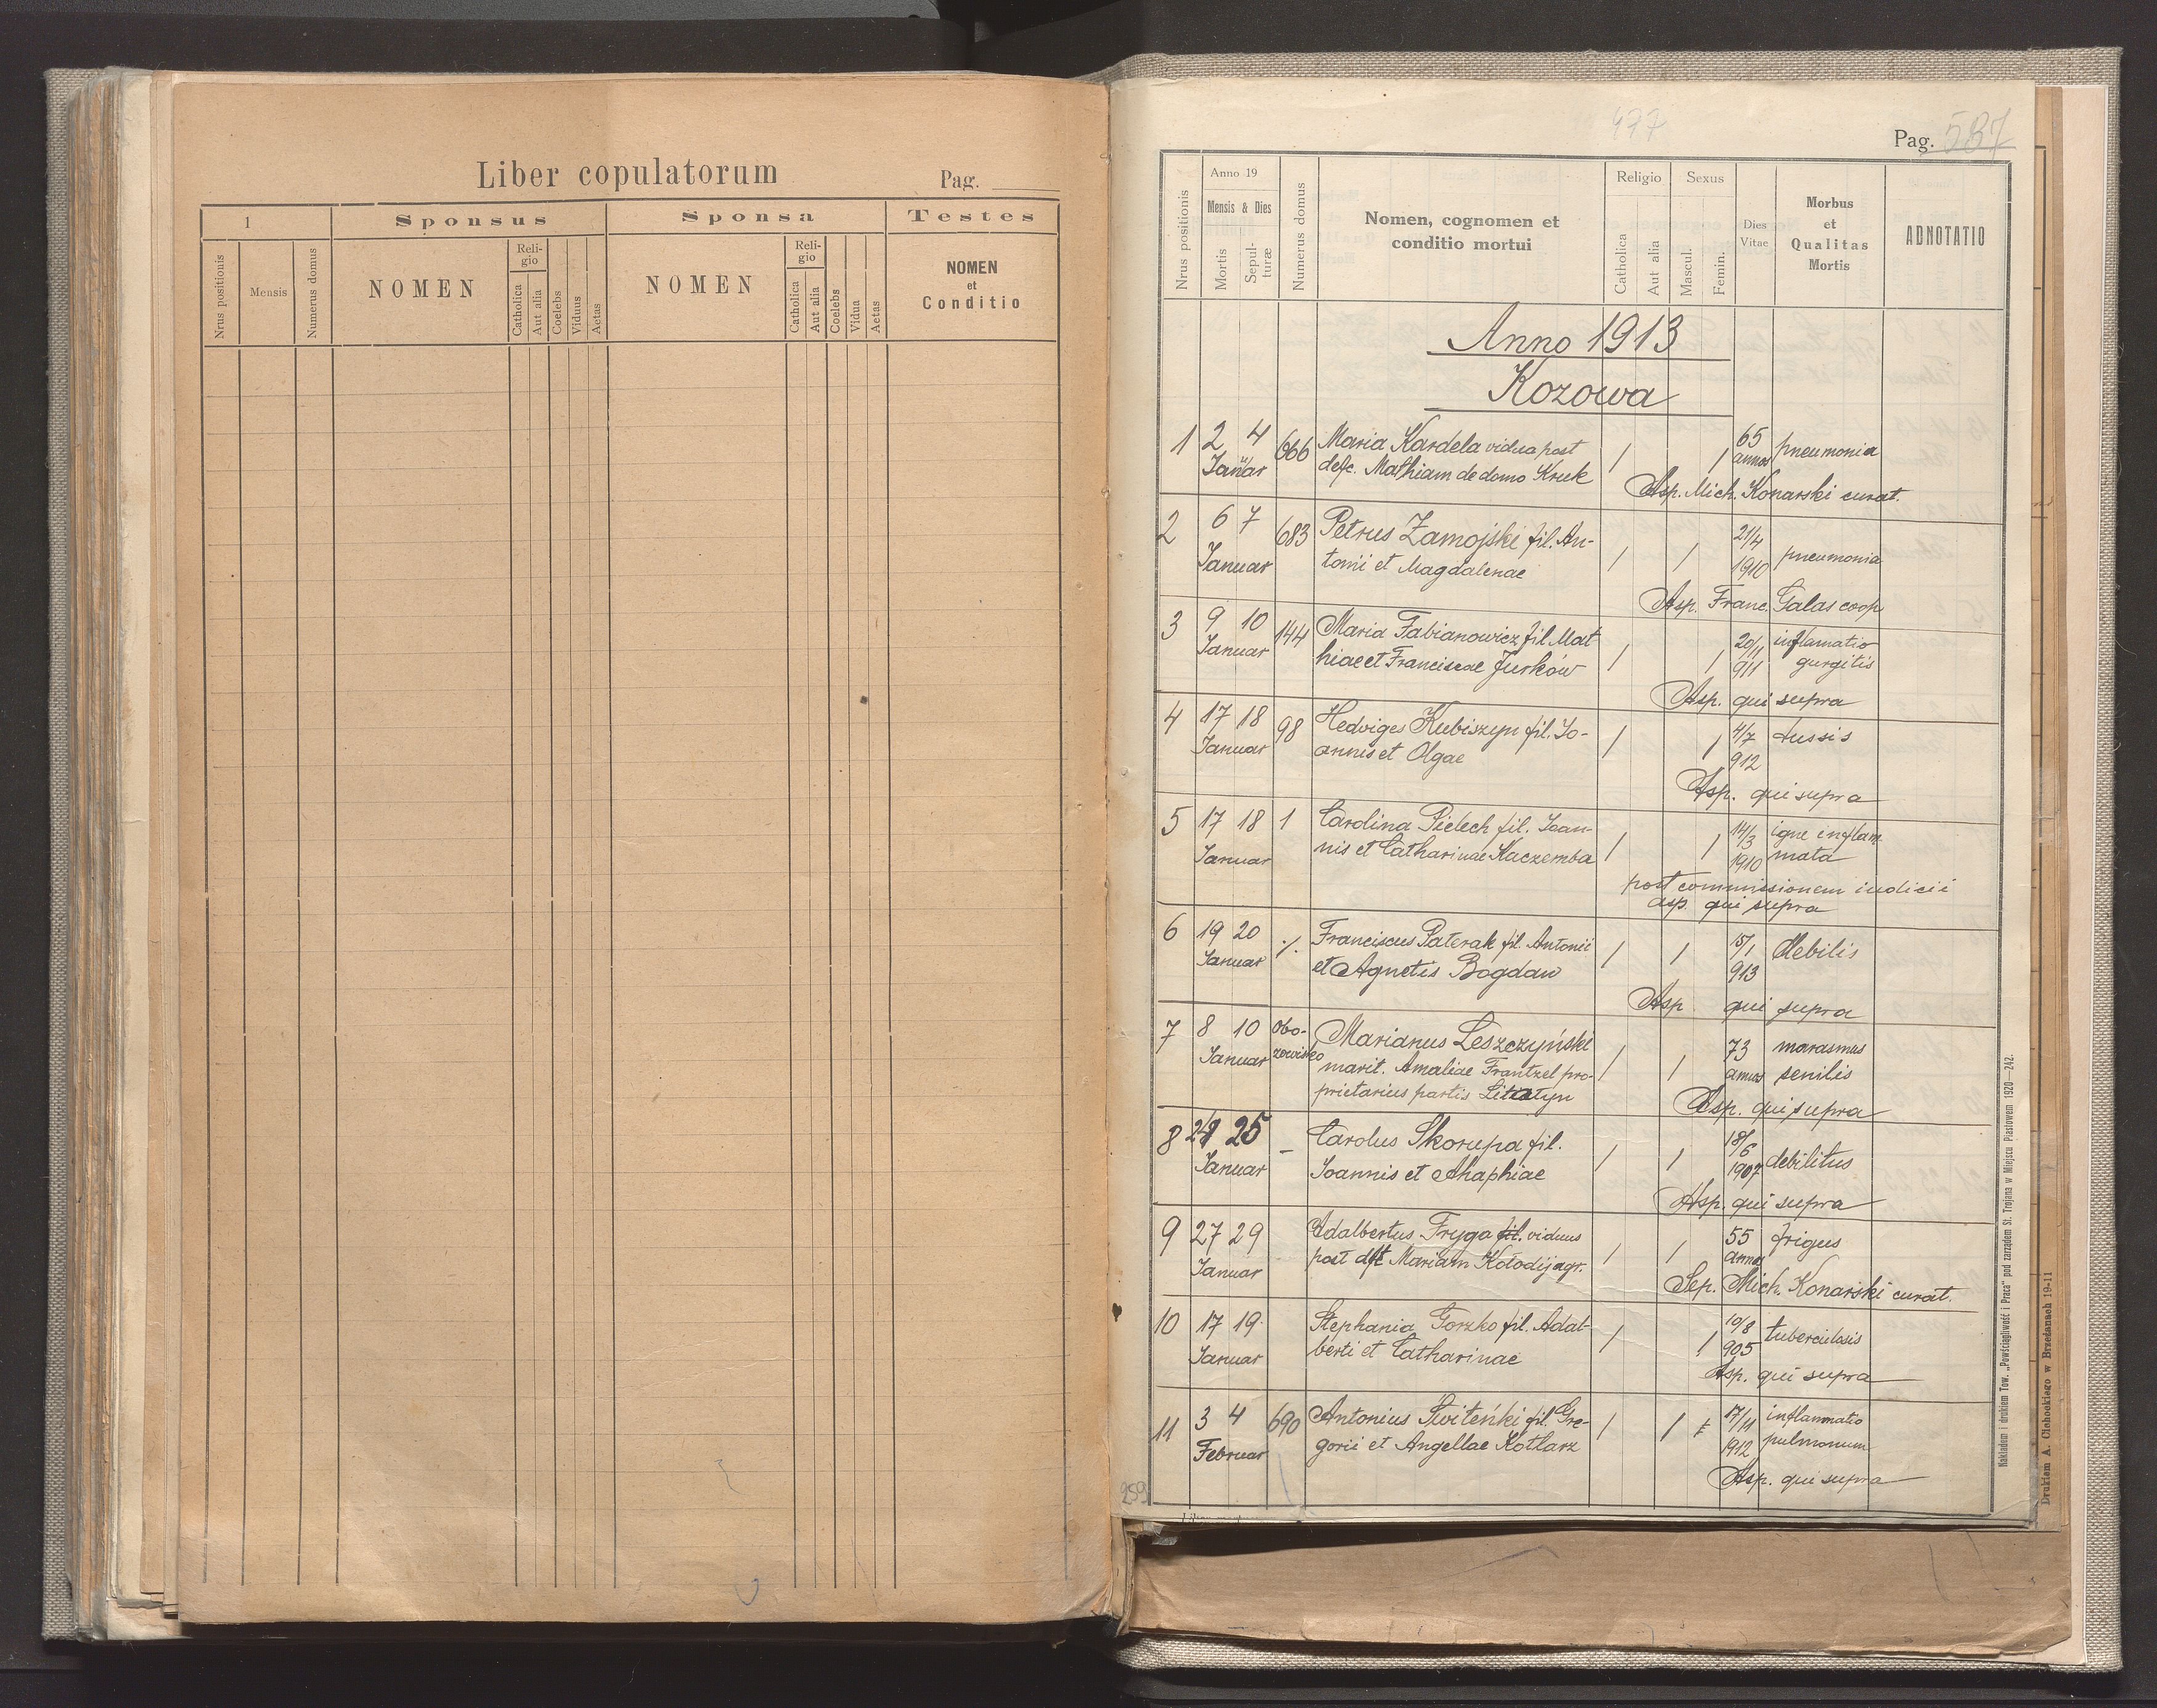 Liber copulatorum
Pag.
1
Sponsus
Sponsa
Testes
Nrus positionis
Mensis
Numerus domus
NOMEN
Religio
Catholica
Aut alia
Coelebs
Viduus
Aetas
NOMEN
Religio
Catholica
Aut alia
Coelebs
Vidua
Aetas
NOMEN
et
Conditio
477
Pag. 587
Nrus positionis
Anno 19
Mensis & Dies
Mortis
Sepul-
turæ
Numerus domus
Nomen, cognomen et
conditio mortui
Religio
Catholica
Aut alia
Sexus
Mascul.
Femin.
Dies
Vitae
Morbus
et
Qualitas
Mortis
ADNOTATIO
Anno 1913
Kozowa
1 2 4 666 Maria Kardela vidua post / / 65 pneumonia
Januar defc. Mathiam de domo Kruk annos
Asp. Mich. Konarski curat.
2 6 7 683 Petrus Zamojski fil. An- / / 21/4 pneumonia
Januar tonii et Magdalenae 1910
Asp. Franc. Galas coop
3 9 10 144 Maria Fabianowicz fil. Mat / / 20/11 inflamatio
Januar hiae et Franciscae Jurków 911 gurgitis
Asp. qui supra
4 17 18 98 Hedviges Kubiszyn fil. Jo- / / 4/7 tussis
Januar annis et Olgae 912
Asp. qui supra
5 17 18 1 Carolina Pielech fil. Joan- / / 14/3 igne inflam
Januar nis et Catharinae Kaczemba 1910 mata
post commissionem iudicii
asp. qui supra
6 19 20 ./. Franciscus Paterak fil. Antonii / / 15/1 debilis
Januar et Agnetis Bogdan 913
Asp qui supra
7 8 10 Obo- Marianus Leszczyński / / 73 marasmus
Januar zowisko marit. Amaliae Frantzel pro- annos senilis
prietarius partis Litiatyn
Asp. qui supra
8 24 25 – Carolus Skorupa fil. / / 18/6 debilitus
Januar Joannis et Ahaphiae 1907
Asp. qui supra
9 27 29 Adalbertus Fryga fil. viduus / / 55 frigus
Januar post dft Mariam Kołodij agr. annos
Sep. Mich. Konarski curat.
10 17 19 Stephania Gorzko fil. Adal- / / 10/8 tuberculosis
Januar berti et Catharinae 905
Asp. qui supra
11 3 4 690 Antonius Świteński fil. Gre- / / 17/11 inflammatio
Februar gorii et Angellae Kotlarz 1912 pulmonum
Asp. qui supra
259
Nakładem i drukiem Tow. „Powściągliwość i Praca" pod zarządem St. Trojana w Miejscu Piastowem 1920—242.
Drukiem A. Ciahockiego w Brzeżanach 19-11